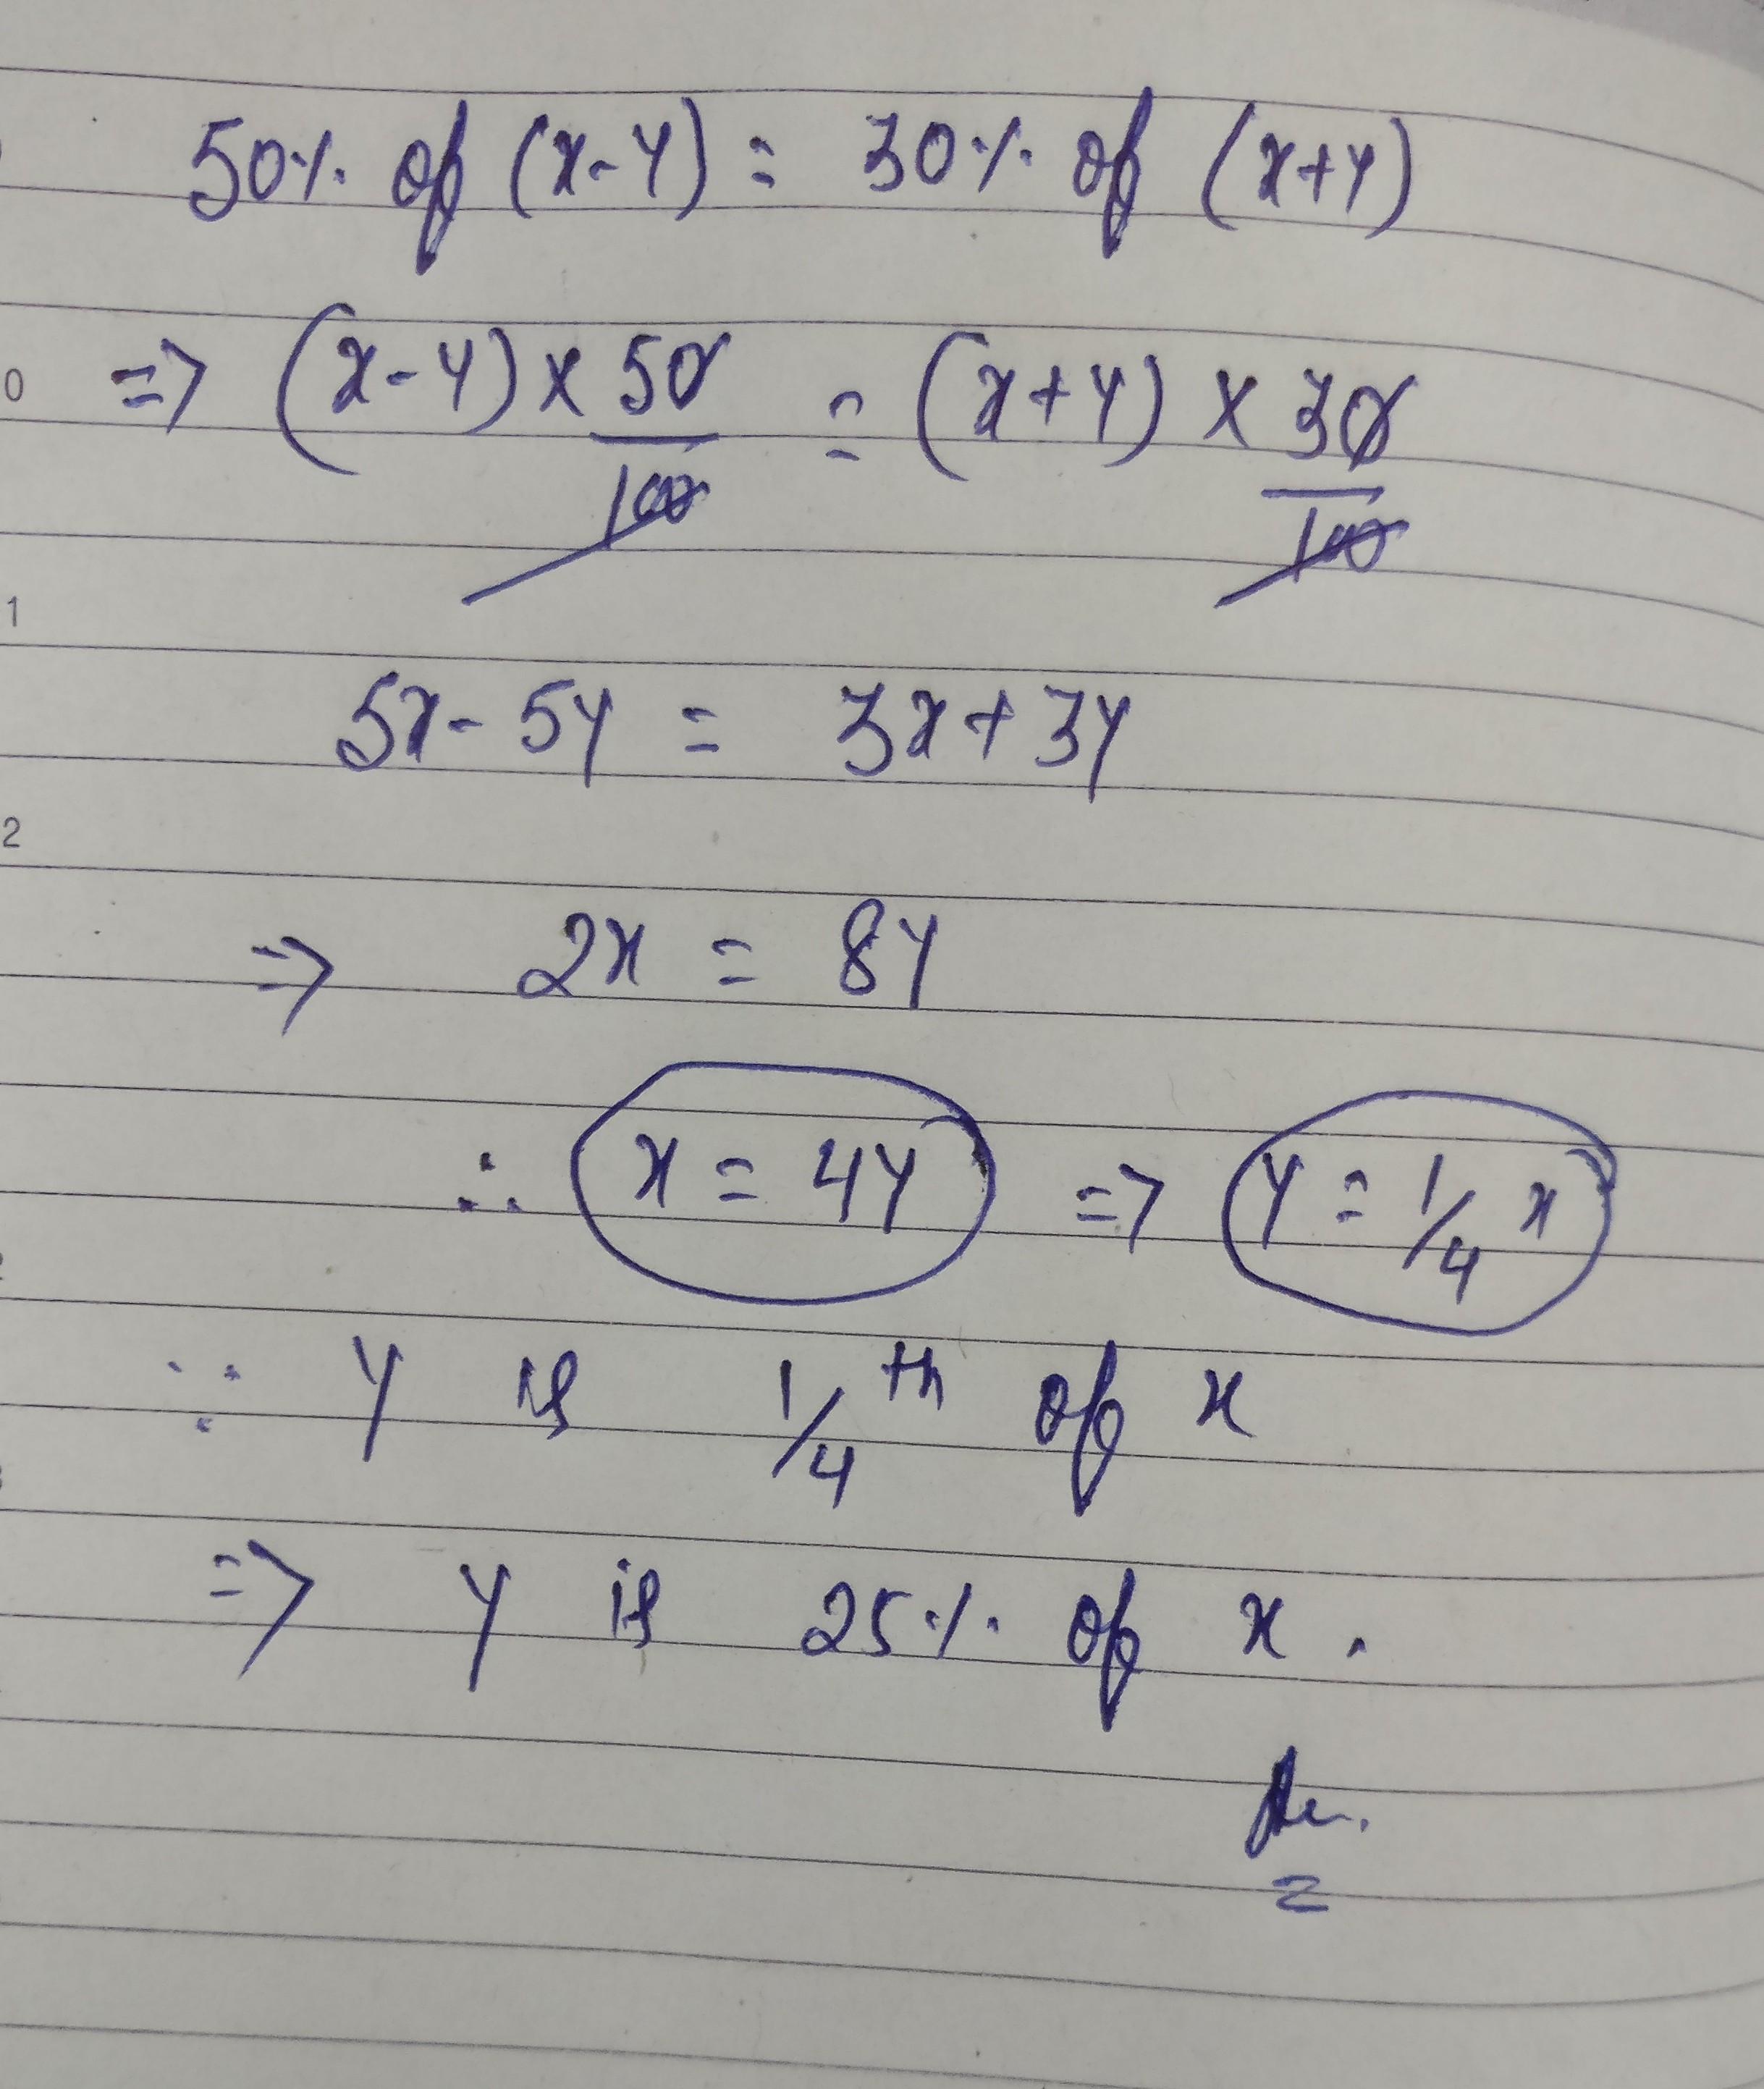 50% of (x-y) = 30% of (x+y)
=> (x-y) x 50/100 = (x+y) x 30/100
5x - 5y = 3x + 3y
=> 2x = 8y
∴ x = 4y => y = 1/4 x
∵ y is 1/4 th of x
=> y is 25% of x.